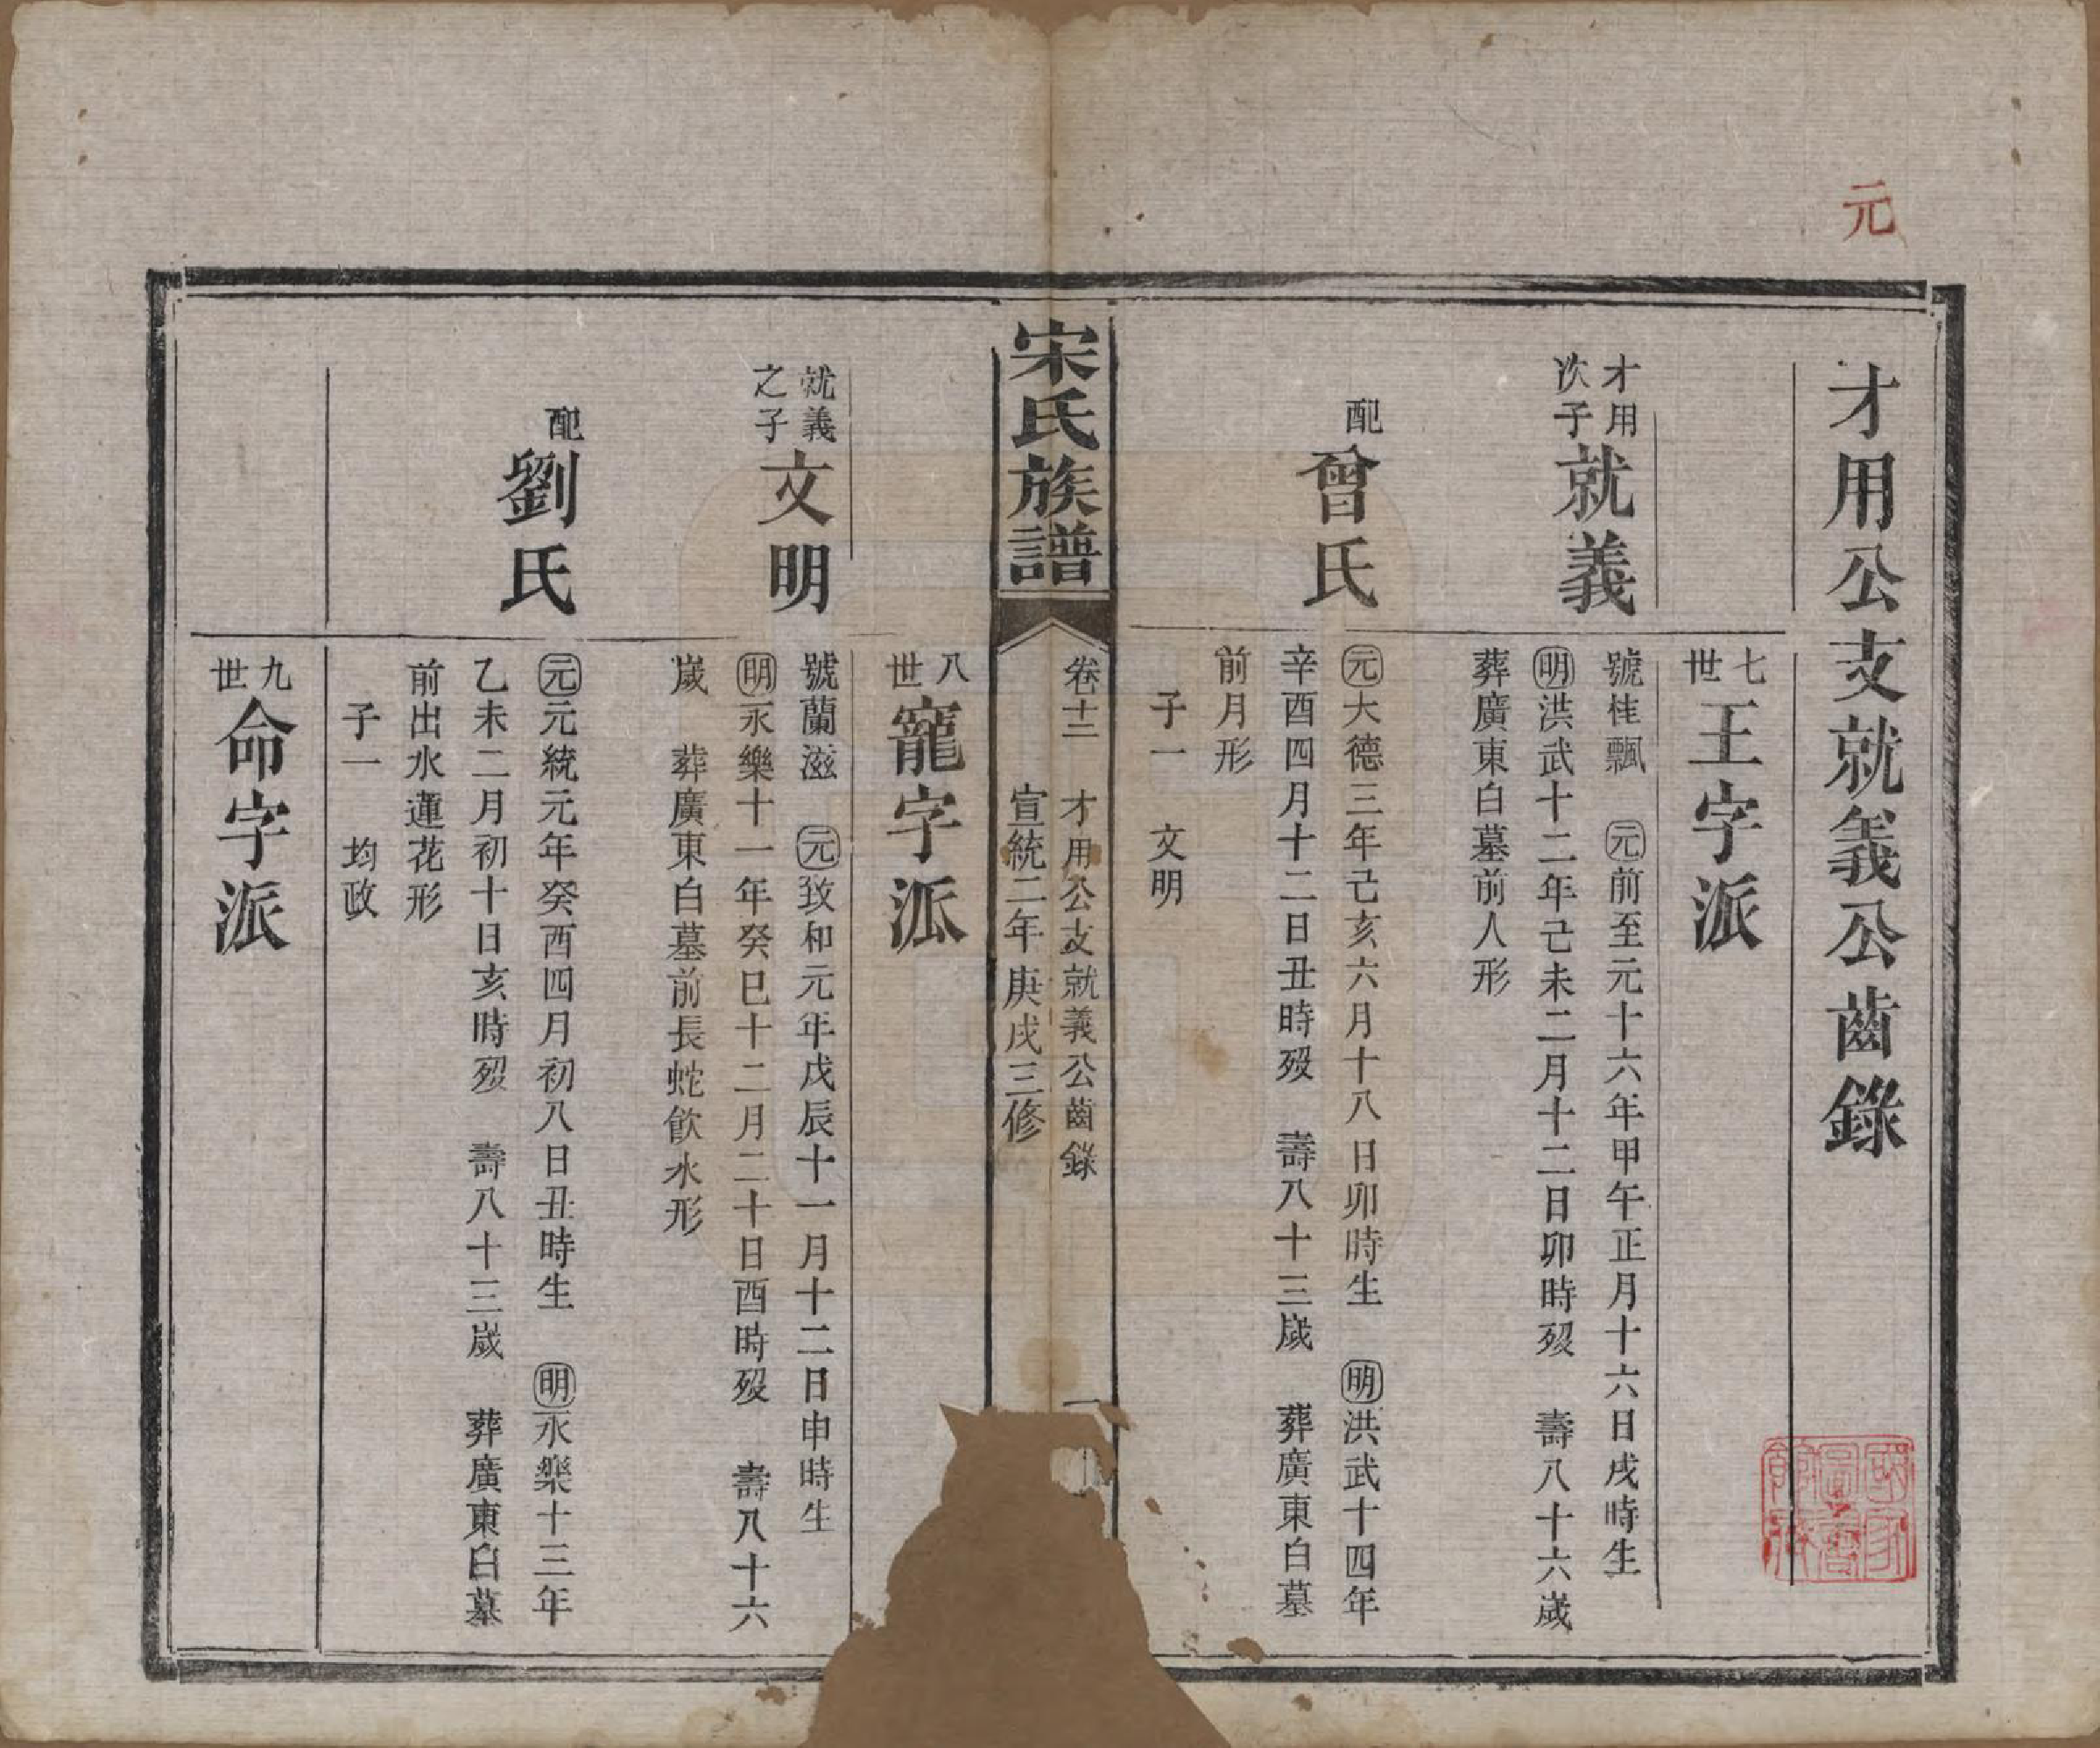 元
才用公支就義公齒錄
七世王字派
才用次子就義
號桂飄 元前至元十六年甲午正月十六日戌時生
明洪武十二年己未二月十二日卯時歿 壽八十六歲
葬廣東白墓前人形
配曾氏
元大德三年己亥六月十八日卯時生 明洪武十四年
辛酉四月十二日丑時歿 壽八十三歲 葬廣東白墓
前月形
子一 文明
宋氏族譜
卷十二 才用公支就義公齒錄 一
宣統二年庚戌三修
八世寵字派
就義之子文明
號蘭滋 元致和元年戊辰十一月十二日申時生
明永樂十一年癸巳十二月二十日酉時歿 壽八十六
歲 葬廣東白墓前長蛇飲水形
配劉氏
元元統元年癸酉四月初八日丑時生 明永樂十三年
乙未二月初十日亥時歿 壽八十三歲 葬廣東白墓
前出水蓮花形
子一 均政
九世命字派